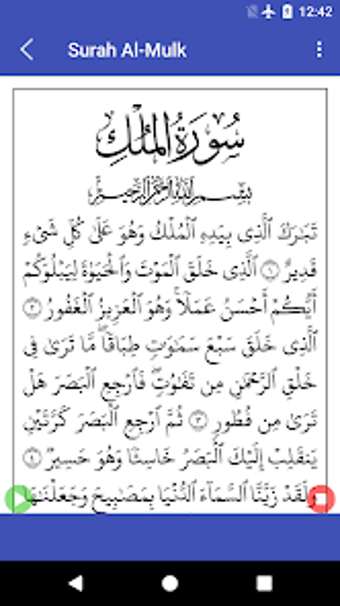 12:42
Surah Al-Mulk
سُورَةُ المُلْكِ
بِسْمِ اللهِ الرَّحْمٰنِ الرَّحِيْمِ
تَبَارَكَ ٱلَّذِى بِيَدِهِ ٱلْمُلْكُ وَهُوَ عَلَىٰ كُلِّ شَىْءٍ
قَدِيرٌ ١ ٱلَّذِى خَلَقَ ٱلْمَوْتَ وَٱلْحَيَوٰةَ لِيَبْلُوَكُمْ
أَيُّكُمْ أَحْسَنُ عَمَلًا ۚ وَهُوَ ٱلْعَزِيزُ ٱلْغَفُورُ ٢
ٱلَّذِى خَلَقَ سَبْعَ سَمَٰوَٰتٍ طِبَاقًا ۖ مَّا تَرَىٰ فِى
خَلْقِ ٱلرَّحْمَٰنِ مِن تَفَٰوُتٍ ۖ فَٱرْجِعِ ٱلْبَصَرَ هَلْ
تَرَىٰ مِن فُطُورٍ ٣ ثُمَّ ٱرْجِعِ ٱلْبَصَرَ كَرَّتَيْنِ
يَنقَلِبْ إِلَيْكَ ٱلْبَصَرُ خَاسِئًا وَهُوَ حَسِيرٌ ٤
وَلَقَدْ زَيَّنَّا ٱلسَّمَآءَ ٱلدُّنْيَا بِمَصَٰبِيحَ وَجَعَلْنَٰهَا